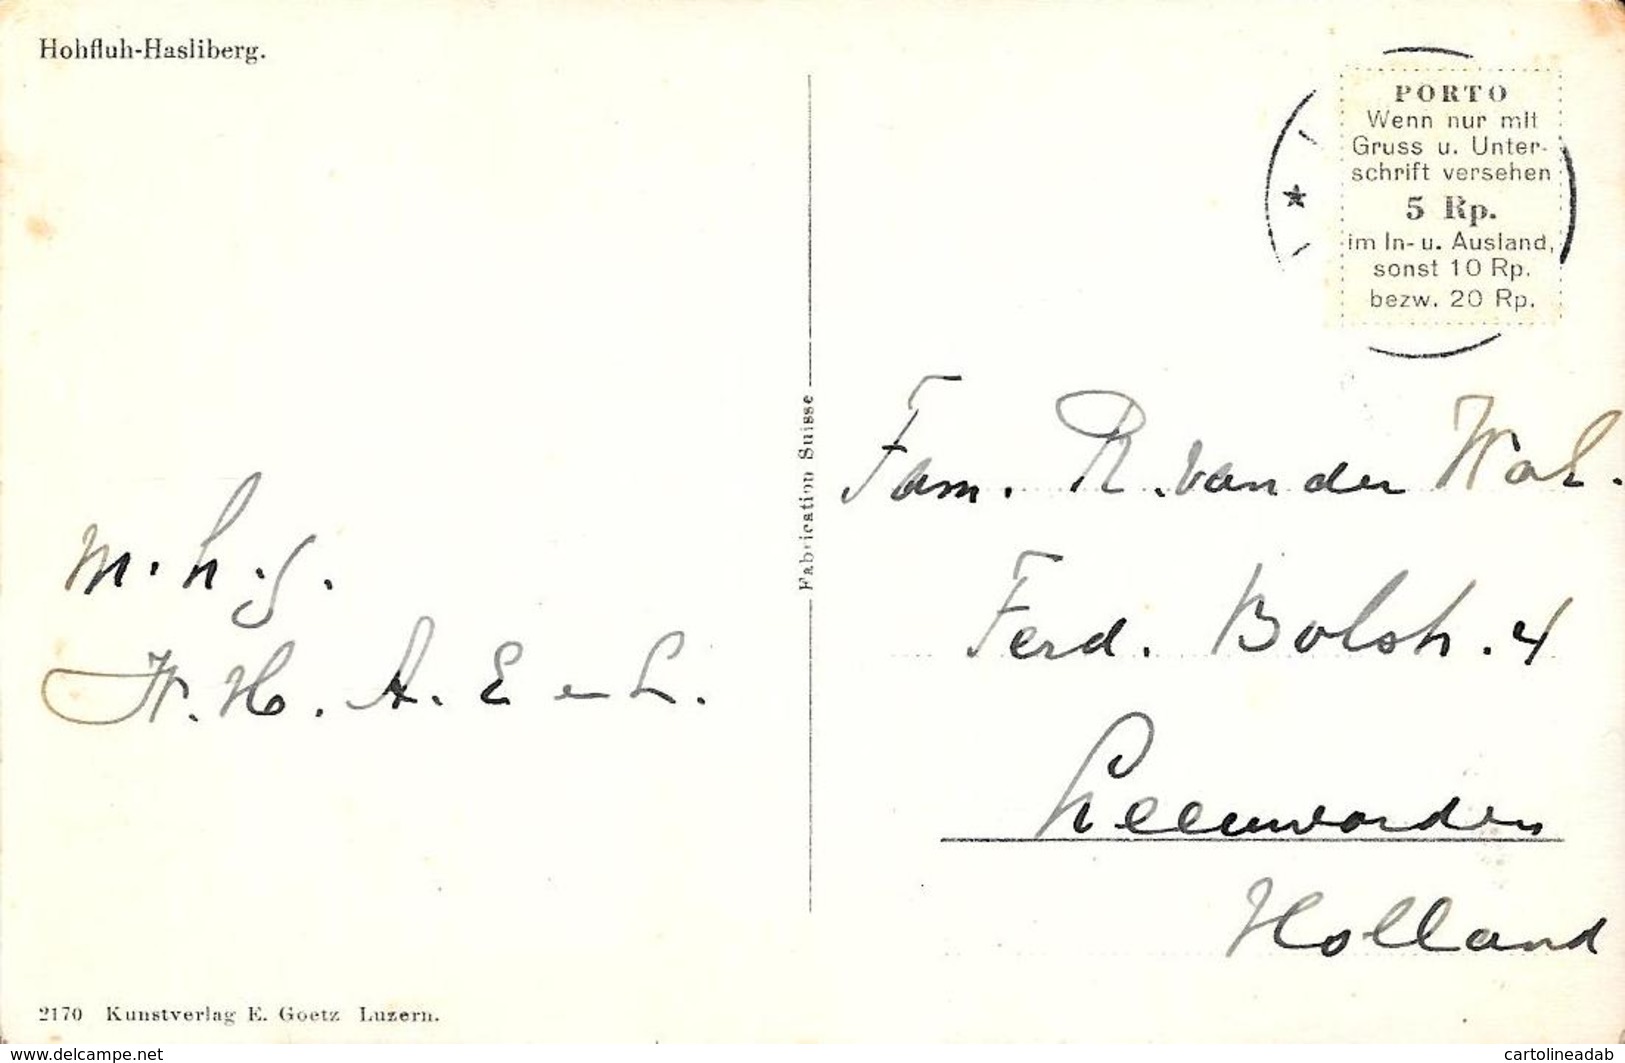 Hohfluh-Hasliberg.
PORTO
Wenn nur mit
Gruss u. Unter-
schrift versehen
5 Rp.
im In- u. Ausland,
sonst 10 Rp.
bezw. 20 Rp.
Fabrication Suisse
m. h. g.
H. A. E en L.
Fam. R. van der Wal.
Ferd. Bolstr. 4
Leeuwarden
Holland
2170 Kunstverlag E. Goetz Luzern.
www.delcampe.net
cartolineadab